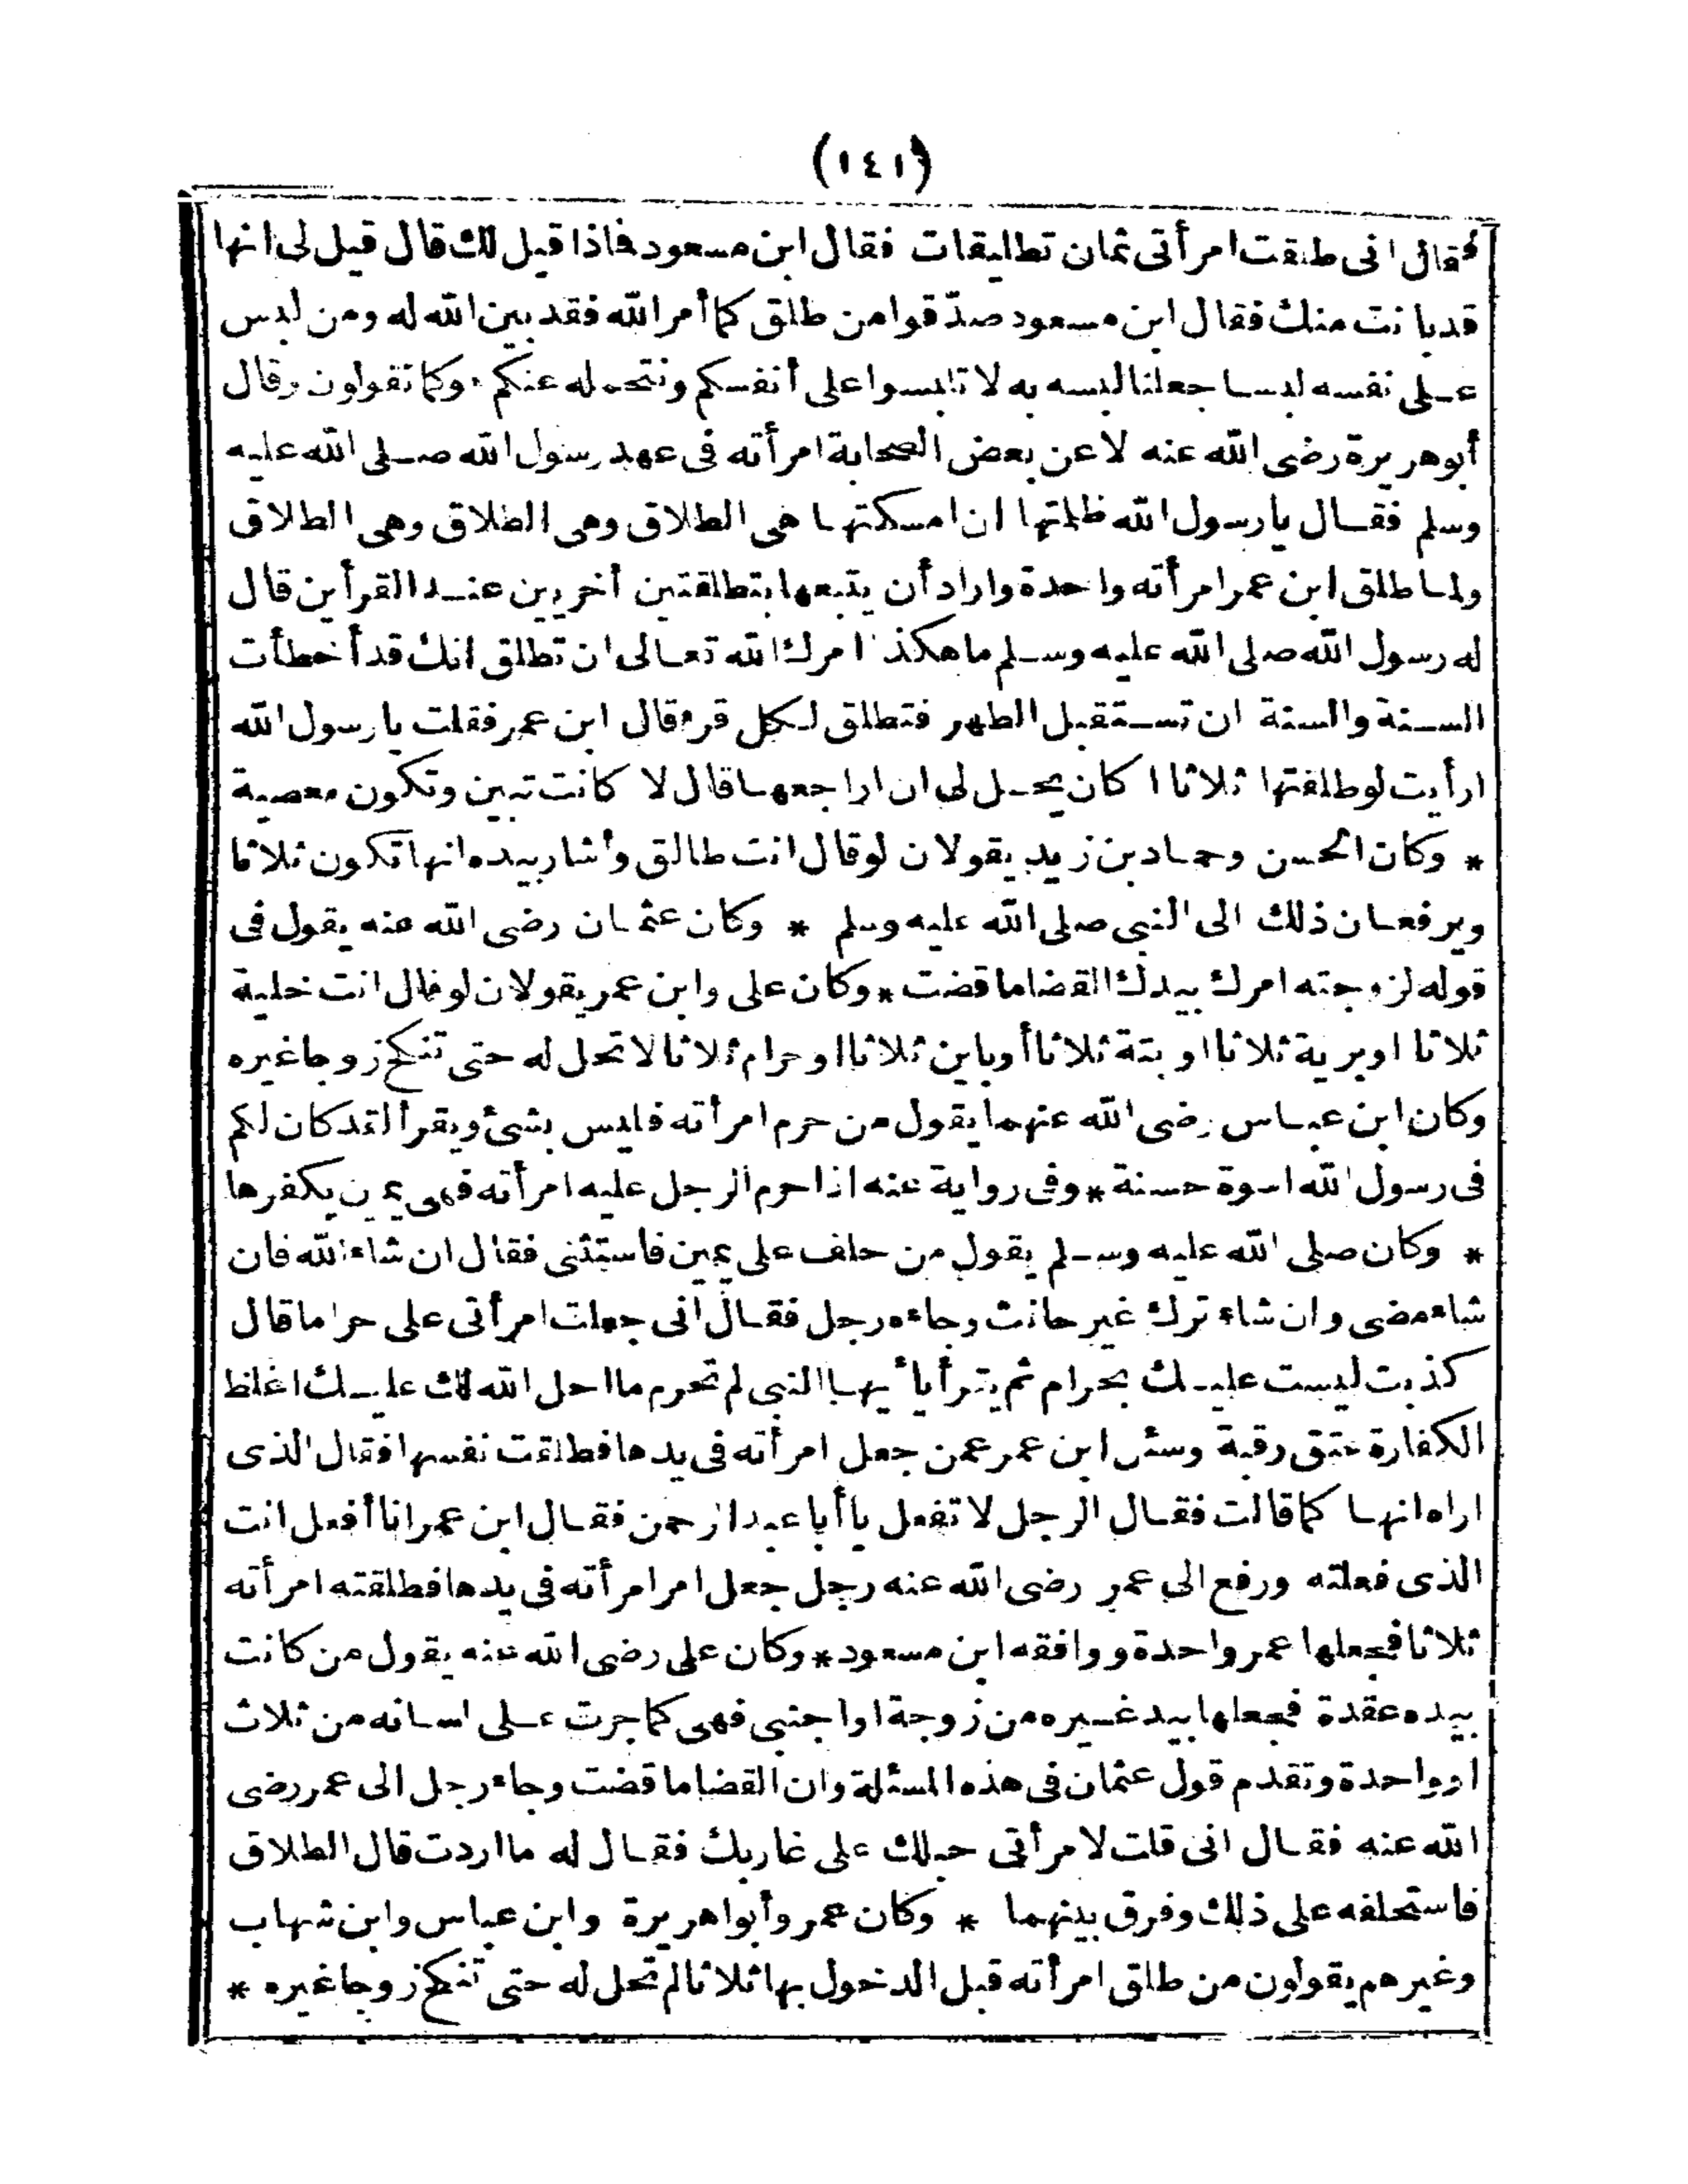 (١٤١)
فقال انى طلقت امرأتى ثمان تطليقات فقال ابن مسعود فاذا قيل لك قال قيل لى انها
قد بانت منك فقال ابن مسعود صدّقوا من طلق كما أمر الله فقد بين الله له ومن لبس
على نفسه لبسا جعلنا لبسه به لا تلبسوا على أنفسكم ونتحمله عنكم وكما تقولون وقال
أبو هريرة رضى الله عنه لا عن بعض الصحابة امرأته فى عهد رسول الله صلى الله عليه
وسلم فقال يا رسول الله ظلمتها ان امسكتها هى الطلاق وهى الطلاق وهى الطلاق
ولما طلق ابن عمر امرأته واحدة واراد أن يتبعها بتطلقتين أخريين عند القرأين قال
له رسول الله صلى الله عليه وسلم ما هكذا امرك الله تعالى ان تطلق انك قد أخطأت
السنة والسنة ان تستقبل الطهر فتطلق لكل قرء قال ابن عمر فقلت يا رسول الله
ارأيت لو طلقتها ثلاثا ا كان يحل لى ان اراجعها قال لا كانت تبين وتكون معصية
* وكان الحسن وحماد بن زيد يقولان لو قال انت طالق وأشار بيده انها تكون ثلاثا
ويرفعان ذلك الى النبى صلى الله عليه وسلم * وكان عثمان رضى الله عنه يقول فى
قوله لزوجته امرك بيدك القضا ما قضت * وكان على وابن عمر يقولان لو قال انت خلية
ثلاثا او برية ثلاثا او بتة ثلاثا أو باين ثلاثا او حرام ثلاثا لا تحل له حتى تنكح زوجا غيره
وكان ابن عباس رضى الله عنهما يقول من حرم امرأته فليس بشئ ويقرأ لقد كان لكم
فى رسول الله اسوة حسنة * وفى رواية عنه اذا حرم الرجل عليه امرأته فهى يمين يكفرها
* وكان صلى الله عليه وسلم يقول من حلف على يمين فاستثنى فقال ان شاء الله فان
شاء مضى وان شاء ترك غير حانث وجاءه رجل فقال انى جعلت امرأتى على حراما قال
كذبت ليست عليك بحرام ثم يقرأ يا أيها النبى لم تحرم ما احل الله لك عليك اغلظ
الكفارة عتق رقبة وسئل ابن عمر عمن جعل امرأته فى يدها فطلقت نفسها فقال الذى
اراه انها كما قالت فقال الرجل لا تفعل يا أبا عبد الرحمن فقال ابن عمر انا أفعل انت
الذى فعلته ورفع الى عمر رضى الله عنه رجل جعل امر امرأته فى يدها فطلقته امرأته
ثلاثا فجعلها عمر واحدة ووافقه ابن مسعود * وكان على رضى الله عنه يقول من كانت
بيده عقدة فجعلها بيد غيره من زوجة او اجنبى فهى كما جرت على لسانه من ثلاث
او واحدة وتقدم قول عثمان فى هذه المسئلة وان القضا ما قضت وجاء رجل الى عمر رضى
الله عنه فقال انى قلت لامرأتى حبلك على غاربك فقال له ما اردت قال الطلاق
فاستحلفه على ذلك وفرق بينهما * وكان عمر وأبوا هريرة وابن عباس وابن شهاب
وغيرهم يقولون من طلق امرأته قبل الدخول بها ثلاثا لم تحل له حتى تنكح زوجا غيره *